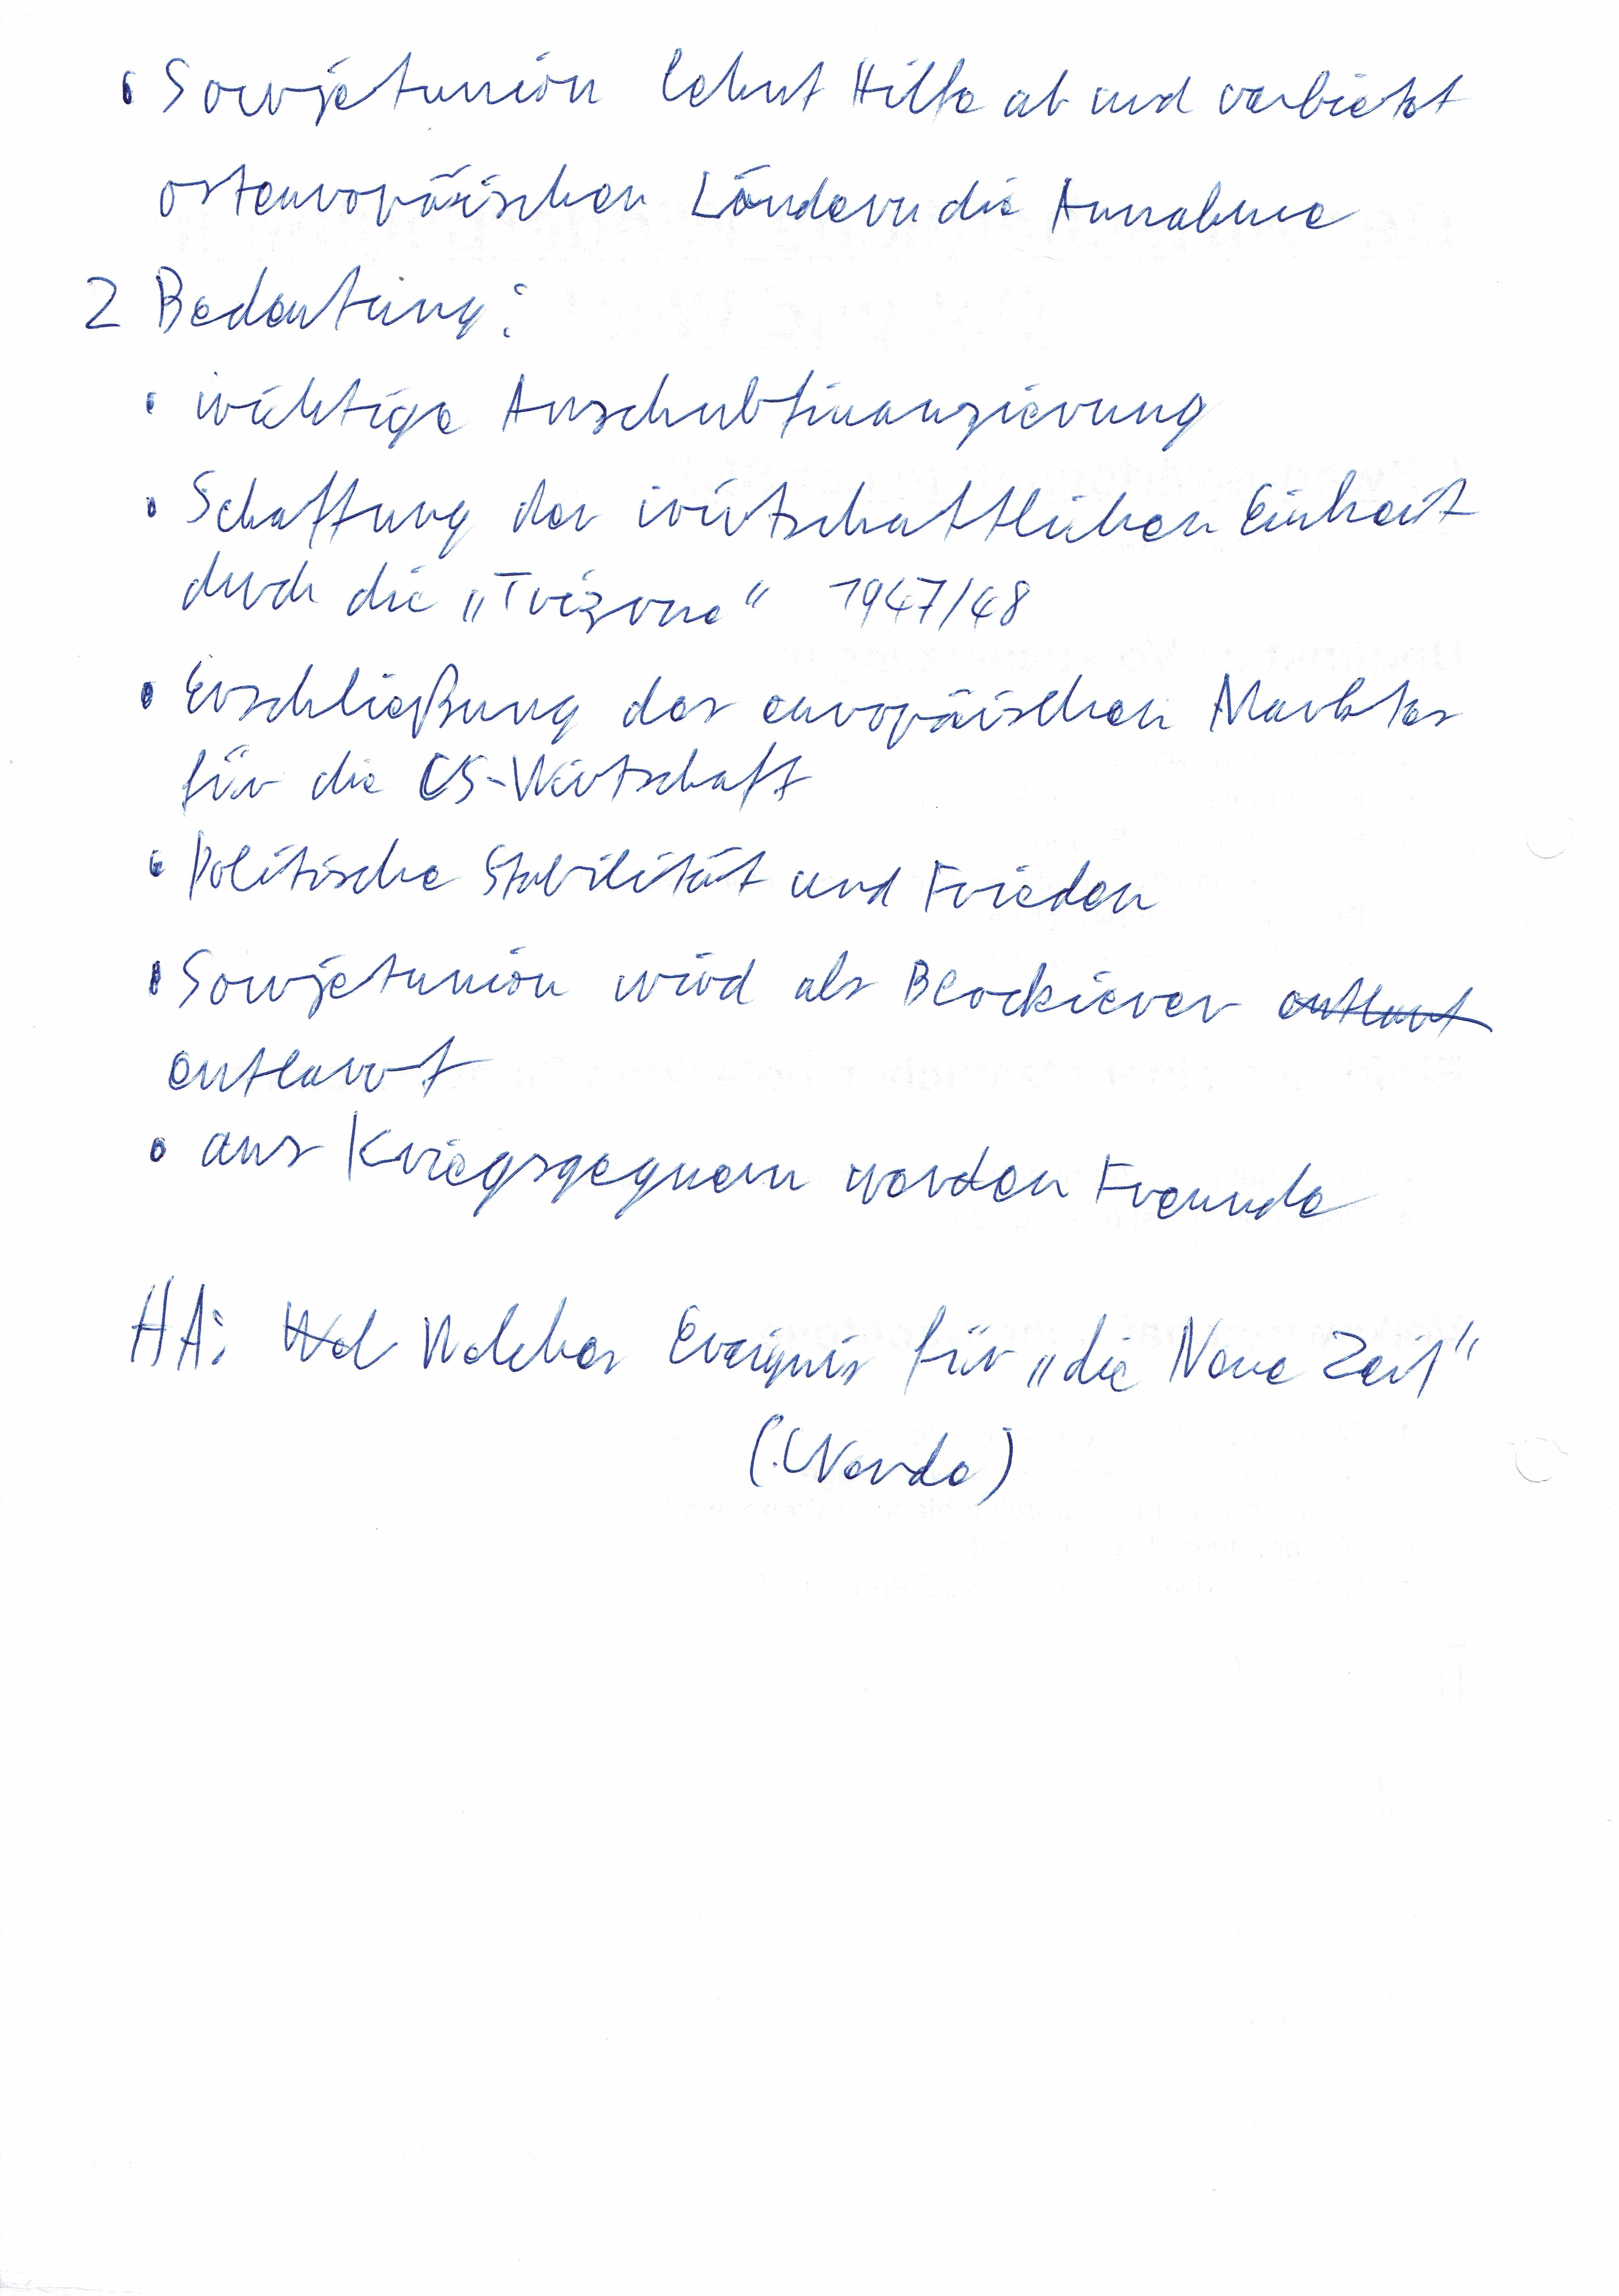 • Sowjetunion lehnt Hilfe ab und verbietet
osteuropäischen Ländern die Annahme
2 Bedeutung:
• wichtige Anschubfinanzierung
• Schaffung der wirtschaftlichen Einheit
durch die „Trizone“ 1947/48
• Erschließung des europäischen Marktes
für die US-Wirtschaft
• Politische Stabilität und Frieden
• Sowjetunion wird als Blockierer entlarvt
entlarvt
• aus Kriegsgegnern werden Freunde
HA: Wel Welches Ereignis für „die Neue Zeit“
(:Wende)